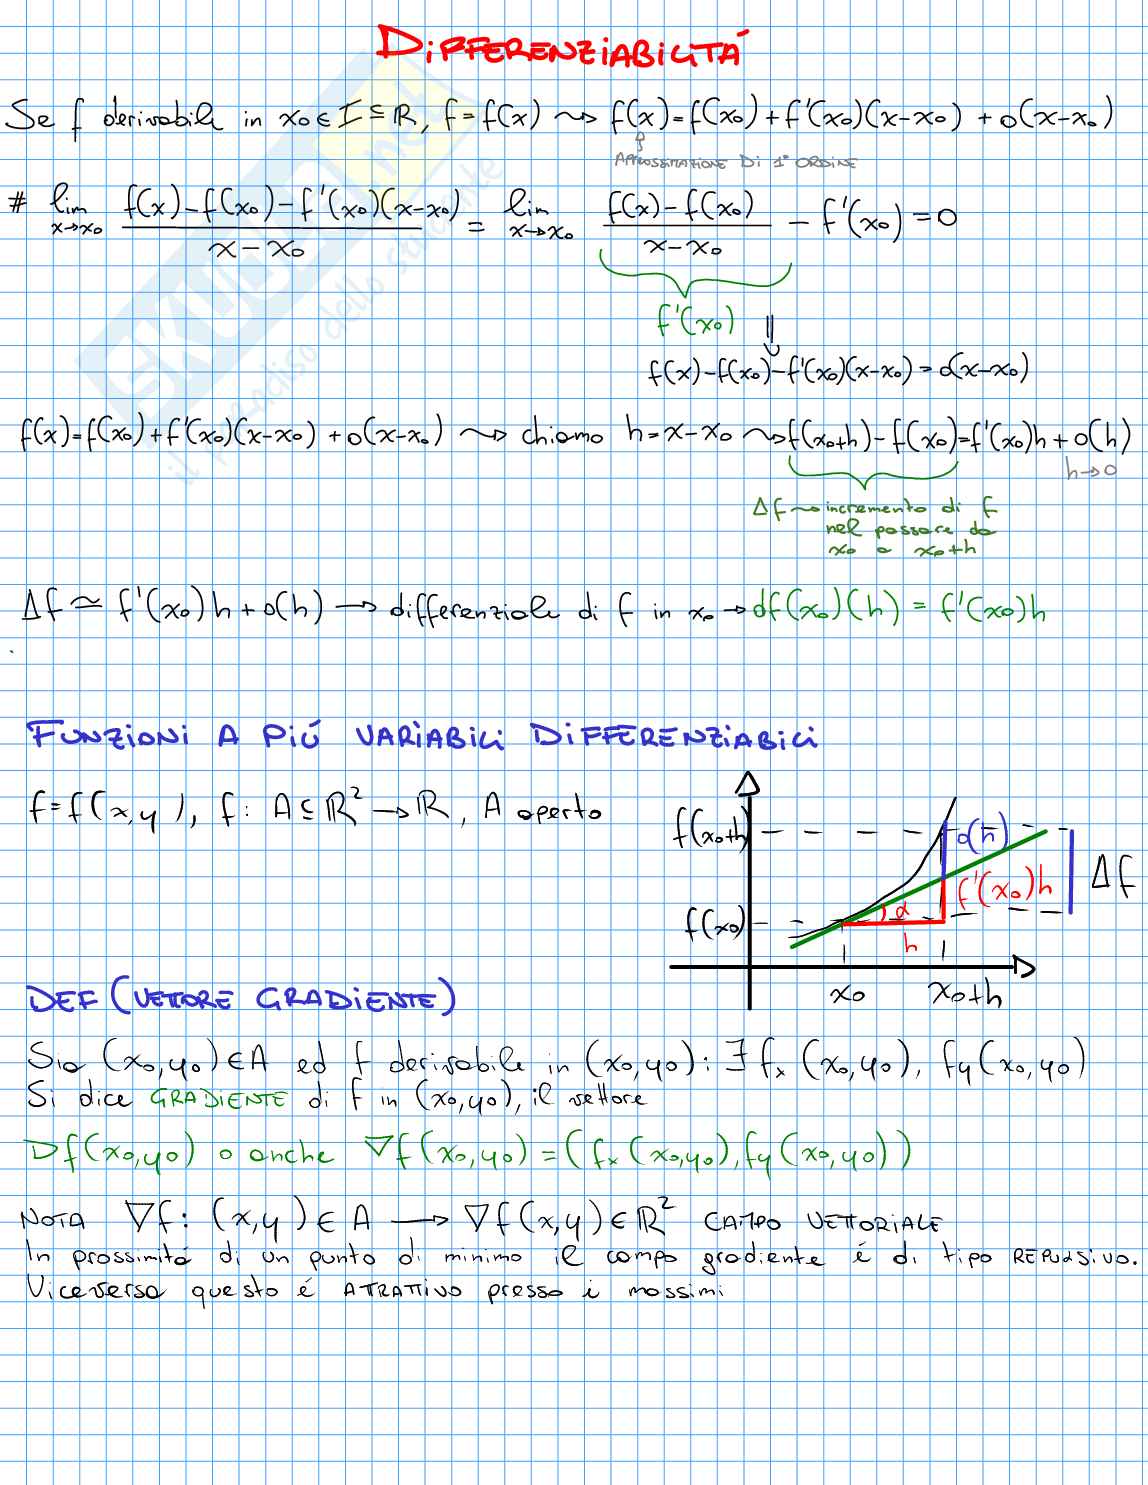 DIFFERENZIABILITÁ
Se f derivabile in x₀ ∈ I ⊆ ℝ, f = f(x) ⇝ f(x) = f(x₀) + f'(x₀)(x-x₀) + o(x-x₀)
APPROSSIMAZIONE DI 1° ORDINE
# lim x→x₀ (f(x) - f(x₀) - f'(x₀)(x-x₀)) / (x-x₀) = lim x→x₀ (f(x) - f(x₀)) / (x-x₀) - f'(x₀) = 0
f'(x₀) ⇓
f(x) - f(x₀) - f'(x₀)(x-x₀) = o(x-x₀)
f(x) = f(x₀) + f'(x₀)(x-x₀) + o(x-x₀) ⇝ chiamo h = x-x₀ ⇝ f(x₀+h) - f(x₀) = f'(x₀)h + o(h)
h→0
Δf ⇝ incremento di f
nel passare da
x₀ a x₀+h
Δf ≃ f'(x₀)h + o(h) → differenziale di f in x₀ → df(x₀)(h) = f'(x₀)h
FUNZIONI A PIÚ VARIABILI DIFFERENZIABILI
f = f(x,y), f: A ⊆ ℝ² → ℝ, A aperto
f(x₀+h)
o(h)
f'(x₀)h
Δf
f(x₀)
α
h
x₀
x₀+h
DEF (VETTORE GRADIENTE)
Sia (x₀,y₀) ∈ A ed f derivabile in (x₀,y₀): ∃ fₓ(x₀,y₀), fy(x₀,y₀)
Si dice GRADIENTE di f in (x₀,y₀), il vettore
Df(x₀,y₀) o anche ∇f(x₀,y₀) = (fₓ(x₀,y₀), fy(x₀,y₀))
NOTA ∇f: (x,y) ∈ A → ∇f(x,y) ∈ ℝ² CAMPO VETTORIALE
In prossimitá di un punto di minimo il campo gradiente é di tipo REPULSIVO.
Viceversa questo é ATTRATTIVO presso i massimi
SKUOLA.net
il paradiso dello studente